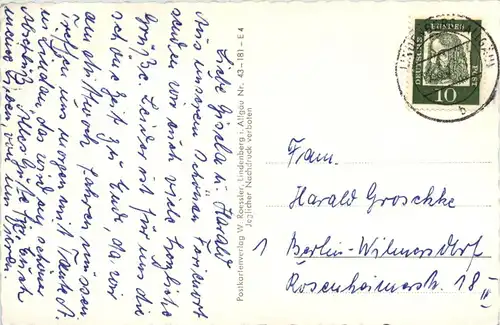 Liebe Gisela u. Harald
Aus unserem schönen Ferienort
senden wir euch viele herzliche
Grüße. Leider ist für uns die
schöne Zeit zu Ende, da wir
am Mittwoch fahren müssen
treffen uns morgen mit Trautl
in Lindau, das wird ein schöner
Abschluß. Alles Gute für Euch
Postkartenverlag W. Roessler, Lindenberg i. Allgäu Nr. 43-181-E 4
Jeglicher Nachdruck verboten
DEUTSCHE BUNDESPOST
10
Fam.
Harald Groschke
1 Berlin-Wilmersdorf
Rosenheimerstr. 18 III